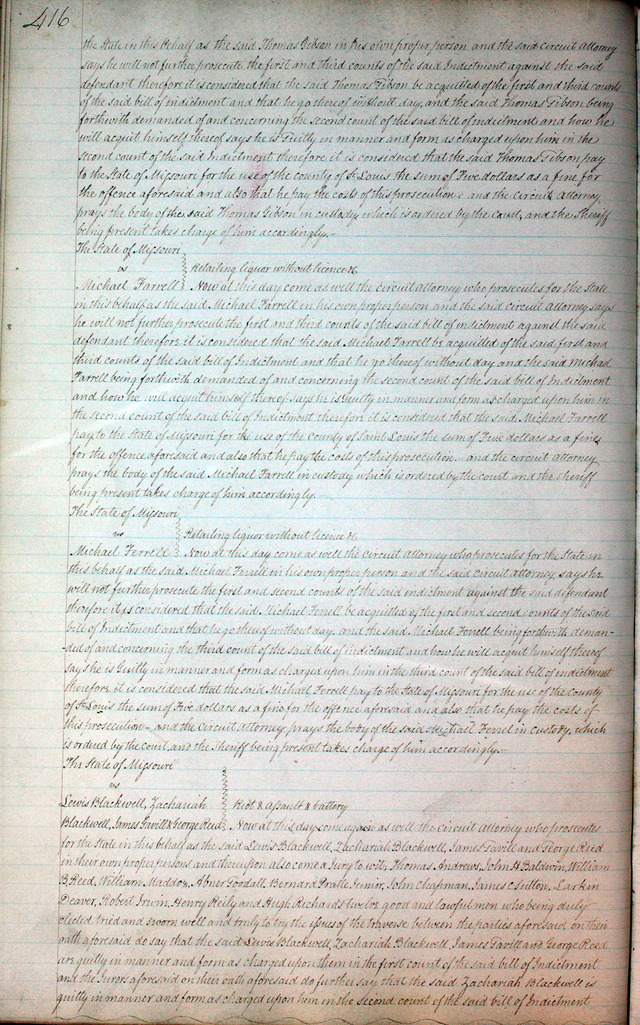 416
the State in this Behalf as the said Thomas Gibson in his own proper person and the said circuit Attorney
says he will not further prosecute the first and third counts of the said Indictment against the said
defendant therefore it is considered that the said Thomas Gibson be acquitted of the first and third counts
of the said bill of indictment and that he go thereof without day, and the said Thomas Gibson being
forthwith demanded of and concerning the second count of the said bill of indictment and how he
will acquit himself thereof says he is Guilty in manner and form as charged upon him in the
second count of the said Indictment therefore it is considered that the said Thomas Gibson pay
to the State of Missouri for the use of the county of St. Louis the sum of Five dollars as a fine for
the offence aforesaid and also that he pay the costs of this prosecution & and the circuit Attorney
prays the body of the said Thomas Gibson in custody which is ordered by the Court, and the Sheriff
being present takes charge of him accordingly.—
The State of Missouri
vs Retailing liquor without licence &c.
Michael Farrell Now at this day come as well the circuit attorney who prosecutes for the State
in this behalf as the said Michael Farrell in his own proper person and the said circuit Attorney says
he will not further prosecute the first and third counts of the said bill of indictment against the said
defendant therefore it is considered that the said Michael Farrell be acquitted of the said first and
third counts of the said bill of Indictment and that he go thereof without day and the said Michael
Farrell being forthwith demanded of and concerning the second count of the said bill of Indictment
and how he will acquit himself thereof says he is Guilty in manner and form as charged upon him in
the second count of the said bill of Indictment therefore it is considered that the said Michael Farrell
pay to the State of Missouri for the use of the County of Saint Louis the sum of Five dollars as a fine
for the offence aforesaid and also that he pay the costs of this prosecution— and the circuit attorney
prays the body of the said Michael Farrell in custody which is ordered by the court and the sheriff
being present takes charge of him accordingly.
The State of Missouri
vs Retailing liquor without licence &c
Michael Ferrell Now at this day come as well the circuit Attorney who prosecutes for the State in
this behalf as the said Michael Ferrell in his own proper person and the said circuit Attorney says he
will not further prosecute the first and second counts of the said indictment against the said defendant
therefore it is considered that the said Michael Ferrell be acquitted of the first and second counts of the said
bill of Indictment and that he go thereof without day. and the said Michael Ferrell being forthwith deman-
ded of and concerning the third count of the said bill of indictment and how he will acquit himself thereof
says he is Guilty in manner and form as charged upon him in the third count of the said bill of indictment
therefore it is considered that the said Michael Ferrell pay to the State of Missouri for the use of the County
of St. Louis the sum of Five dollars as a fine for the offence aforesaid and also that he pay the costs of
this prosecution— and the circuit attorney prays the body of the said Michael Ferrel in custody, which
is ordered by the court, and the Sheriff being present takes charge of him accordingly.—
The State of Missouri
vs
Lewis Blackwell, Zachariah Riot & assault & battery
Blackwell, James Gavill & George Reed Now at this day come again as well the circuit Attorney who prosecutes
for the State in this behalf as the said Lewis Blackwell, Zachariah Blackwell, James Gavill and George Reed
in their own proper persons and thereupon also come a Jury to wit, Thomas Andrews, John H Baldwin, William
B. Reed, William Maddox, Abner Goodall, Bernard Pratte Junior, John Chapman, James C. Sutton, Larkin
Deaver, Robert Irwin, Henry Reily and Hugh Richards twelve good and lawful men who being duly
elected tried and sworn well and truly to try the issues of the traverse between the parties aforesaid on their
oath aforesaid do say that the said Lewis Blackwell, Zachariah Blackwell, James Gavill and George Reed
are guilty in manner and form as charged upon them in the first count of the said bill of Indictment
and the Jurors aforesaid on their oath aforesaid do further say that the said Zachariah Blackwell is
guilty in manner and form as charged upon him in the second count of the said bill of Indictment